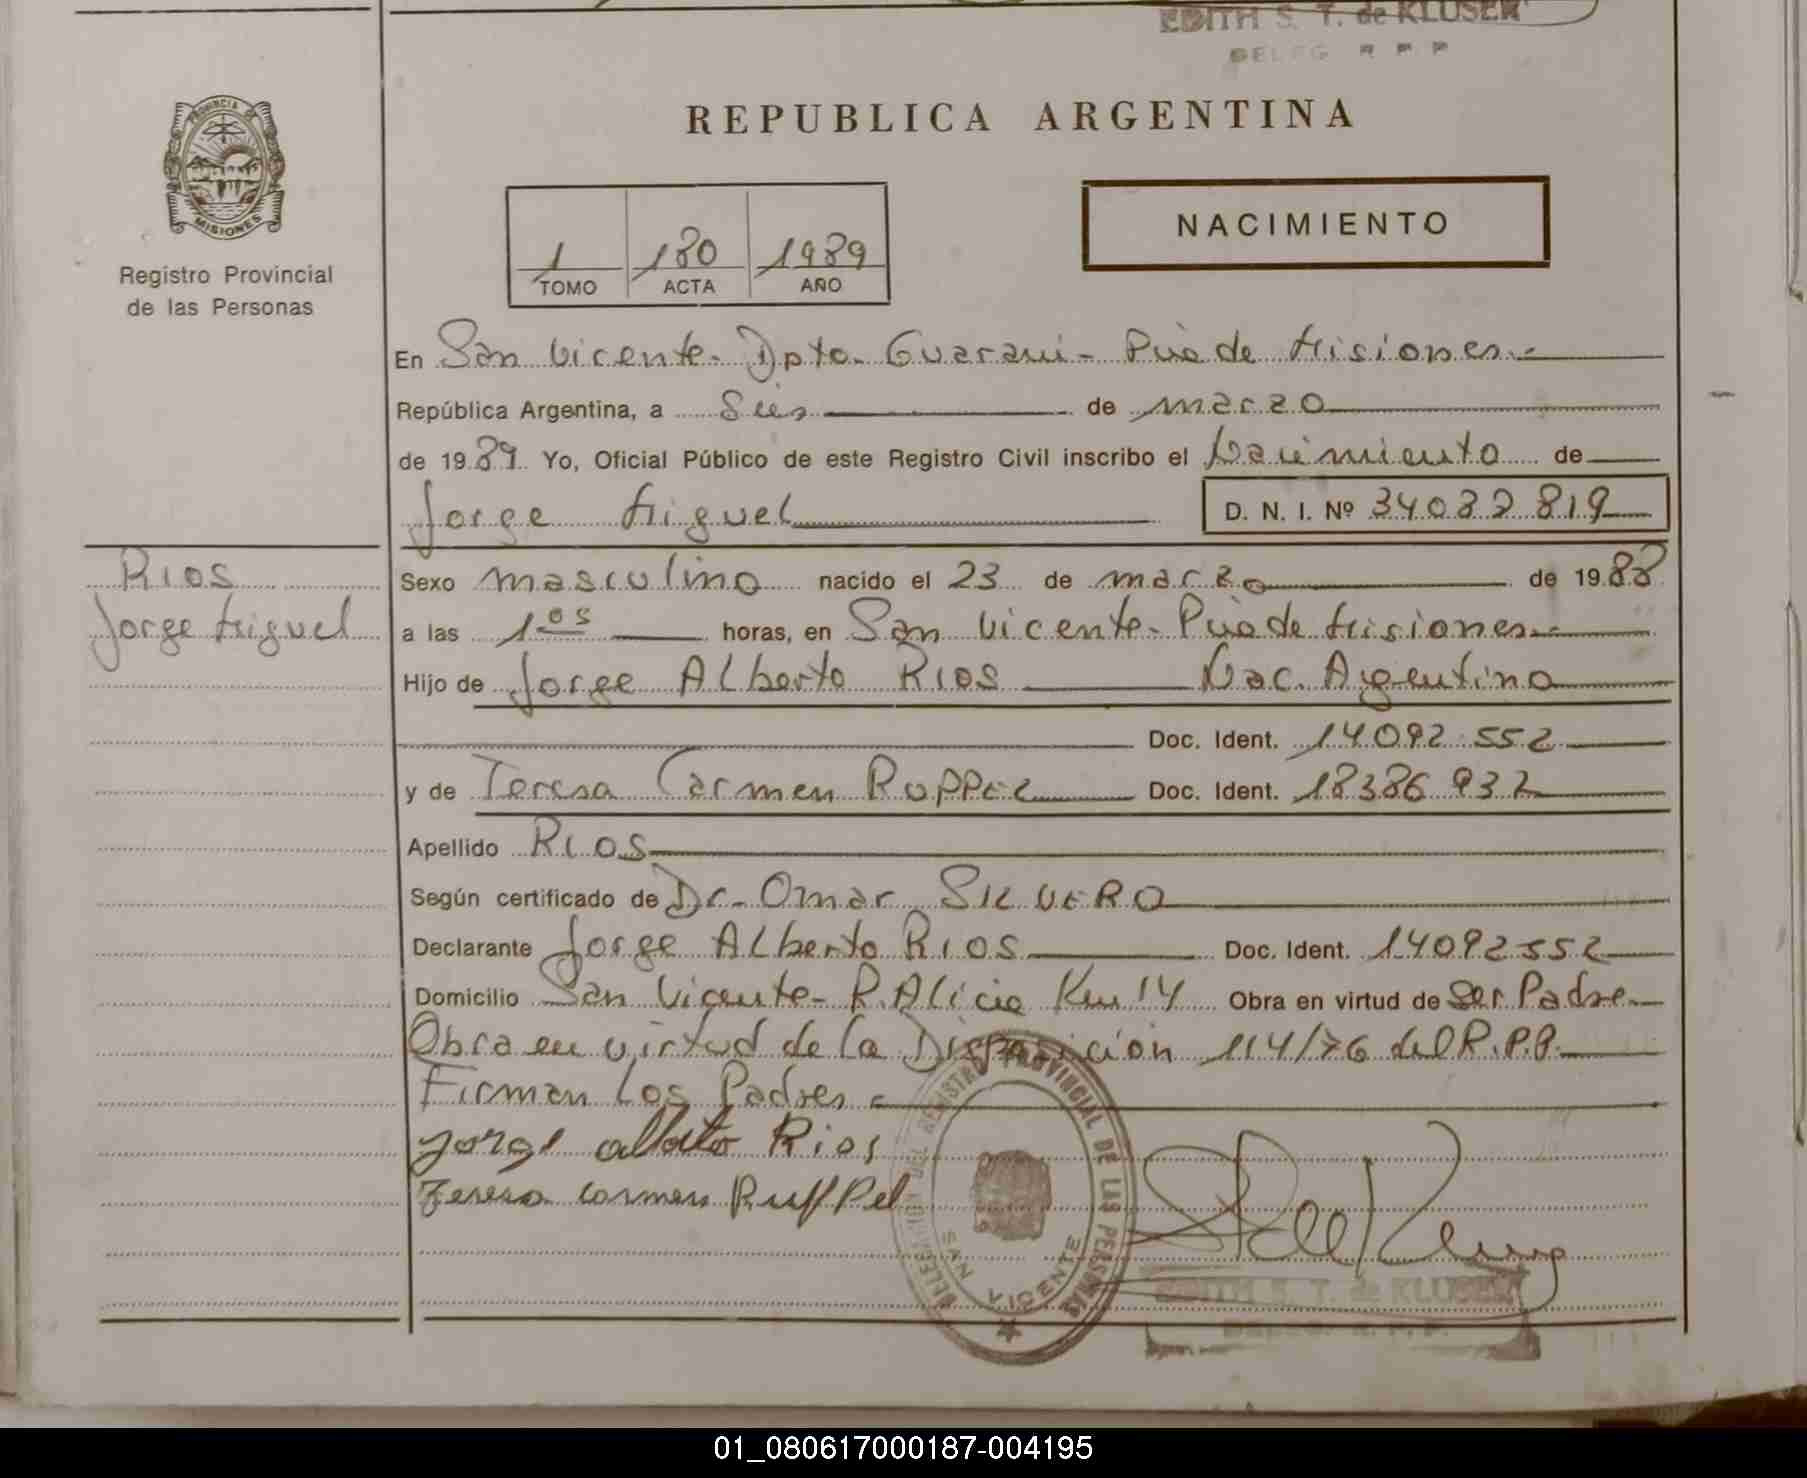 EDITH S. T. de KLUSER
DELEG. R P P
PROVINCIA DE
MISIONES
Registro Provincial
de las Personas
REPUBLICA ARGENTINA
1 180 1989
TOMO ACTA AÑO
NACIMIENTO
En San Vicente - Dpto. Guarani - Pcia de Misiones.-
República Argentina, a Seis de marzo
de 1989. Yo, Oficial Público de este Registro Civil inscribo el Nacimiento de
Jorge Miguel D. N. I. Nº 34032819
RIOS
Jorge Miguel
Sexo masculino nacido el 23 de marzo de 1988
a las 1 os horas, en San Vicente - Pcia de Misiones.-
Hijo de Jorge Alberto RIOS Nac. Argentino
Doc. Ident. 14092552
y de Teresa Carmen RUPPEL Doc. Ident. 18386932
Apellido RIOS
Según certificado de Dr. Omar SILVERO
Declarante Jorge Alberto RIOS Doc. Ident. 14092552
Domicilio San Vicente - P. Alicia Km 14 Obra en virtud de Ser Padre.-
Obra en virtud de la Disposición 114/76 del R.P.P.
Firman Los Padres.-
Jorge Alberto Rios
Teresa Carmen Ruff Pel
DELEGACION DEL REGISTRO PROVINCIAL DE LAS PERSONAS
SAN VICENTE
EDITH S. T. de KLUSER
DELEG. R. P. P.
01_080617000187-004195